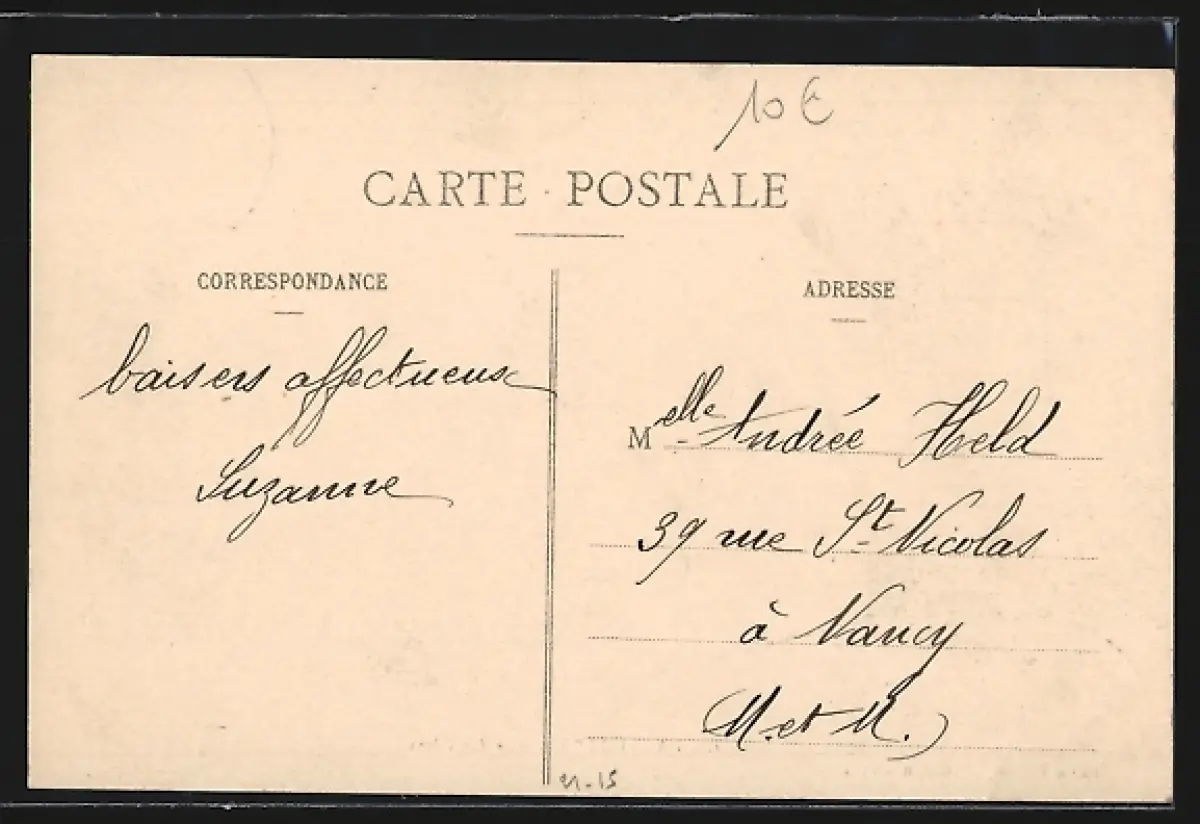 10 €
CARTE POSTALE
CORRESPONDANCE
baisers affectueux
Suzanne
ADRESSE
Melle Andrée Held
39 rue St Nicolas
à Nancy
(M. et M.)